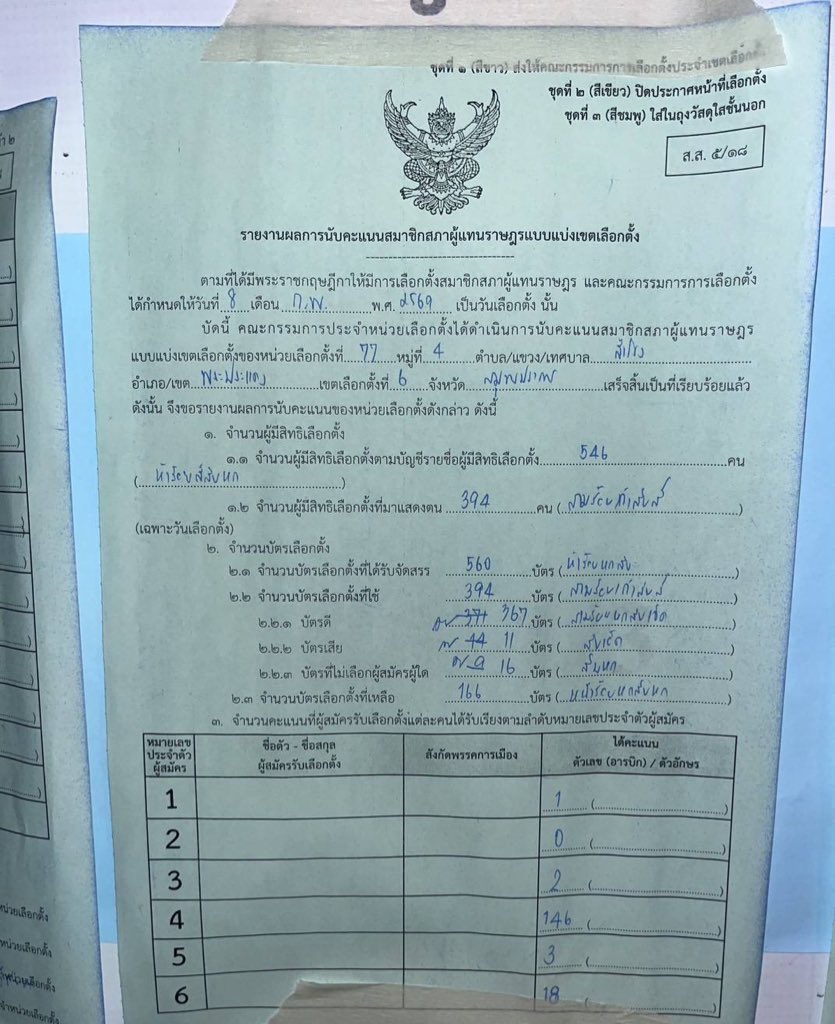 ชุดที่ ๑ (สีขาว) ส่งให้คณะกรรมการการเลือกตั้งประจำเขตเลือกตั้ง
ชุดที่ ๒ (สีเขียว) ปิดประกาศหน้าที่เลือกตั้ง
ชุดที่ ๓ (สีชมพู) ใส่ในถุงวัสดุใสชั้นนอก
ส.ส. ๕/๑๘
รายงานผลการนับคะแนนสมาชิกสภาผู้แทนราษฎรแบบแบ่งเขตเลือกตั้ง
ตามที่ได้มีพระราชกฤษฎีกาให้มีการเลือกตั้งสมาชิกสภาผู้แทนราษฎร และคณะกรรมการการเลือกตั้ง
ได้กำหนดให้วันที่ 8 เดือน ก.พ. พ.ศ. ๒569 เป็นวันเลือกตั้ง นั้น
บัดนี้ คณะกรรมการประจำหน่วยเลือกตั้งได้ดำเนินการนับคะแนนสมาชิกสภาผู้แทนราษฎร
แบบแบ่งเขตเลือกตั้งของหน่วยเลือกตั้งที่ 77 หมู่ที่ 4 ตำบล/แขวง/เทศบาล สำโรง
อำเภอ/เขต พระประแดง เขตเลือกตั้งที่ 6 จังหวัด สมุทรปราการ เสร็จสิ้นเป็นที่เรียบร้อยแล้ว
ดังนั้น จึงขอรายงานผลการนับคะแนนของหน่วยเลือกตั้งดังกล่าว ดังนี้
๑. จำนวนผู้มีสิทธิเลือกตั้ง
๑.๑ จำนวนผู้มีสิทธิเลือกตั้งตามบัญชีรายชื่อผู้มีสิทธิเลือกตั้ง 546 คน
(ห้าร้อยสี่สิบหก)
๑.๒ จำนวนผู้มีสิทธิเลือกตั้งที่มาแสดงตน 394 คน (สามร้อยเก้าสิบสี่)
(เฉพาะวันเลือกตั้ง)
๒. จำนวนบัตรเลือกตั้ง
๒.๑ จำนวนบัตรเลือกตั้งที่ได้รับจัดสรร 560 บัตร (ห้าร้อยหกสิบ)
๒.๒ จำนวนบัตรเลือกตั้งที่ใช้ 394 บัตร (สามร้อยเก้าสิบสี่)
๒.๒.๑ บัตรดี 371 367 บัตร (สามร้อยหกสิบเจ็ด)
๒.๒.๒ บัตรเสีย 14 11 บัตร (สิบเอ็ด)
๒.๒.๓ บัตรที่ไม่เลือกผู้สมัครผู้ใด 9 16 บัตร (สิบหก)
๒.๓ จำนวนบัตรเลือกตั้งที่เหลือ 166 บัตร (หนึ่งร้อยหกสิบหก)
๓. จำนวนคะแนนที่ผู้สมัครรับเลือกตั้งแต่ละคนได้รับเรียงตามลำดับหมายเลขประจำตัวผู้สมัคร
หมายเลขประจำตัวผู้สมัคร ชื่อตัว - ชื่อสกุล ผู้สมัครรับเลือกตั้ง สังกัดพรรคการเมือง ได้คะแนน ตัวเลข (อารบิก) / ตัวอักษร
1 1
2 0
3 2
4 146
5 3
6 18
น่วยเลือกตั้ง
หน่วยเลือกตั้ง
หน่วยเลือกตั้ง